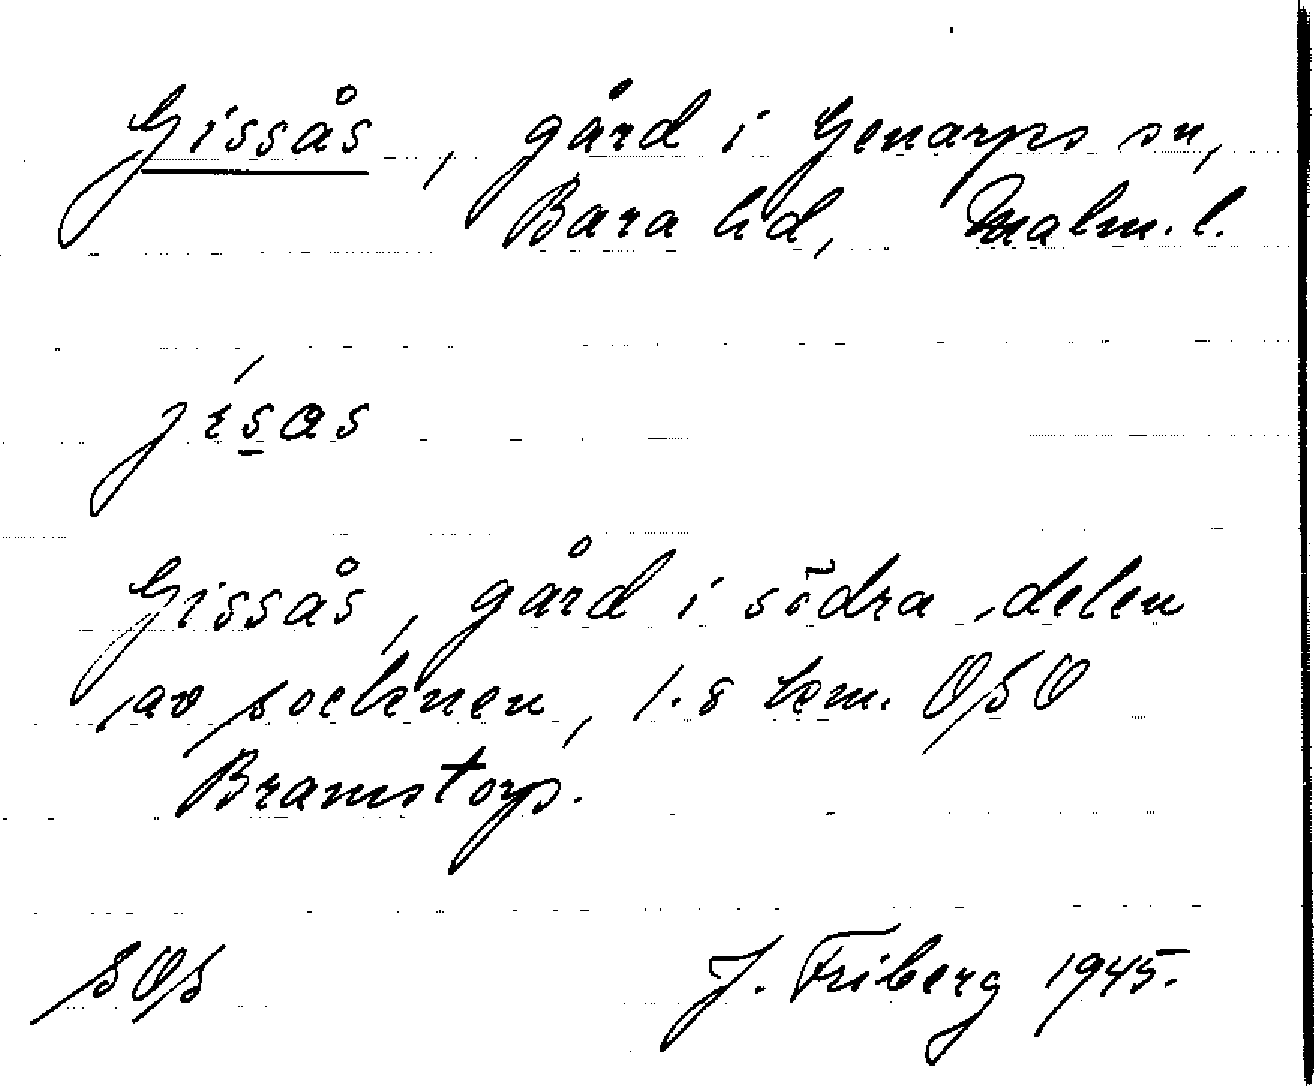 Gissås, gård i Genarps sn,
Bara hd, Malm. l.
jísas
Gissås, gård i södra delen
av socknen, 1.8 km. OSO
Bramstorp.
SOS J. Friberg 1945.